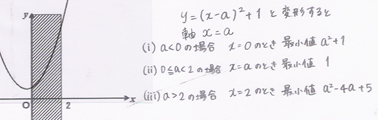 y
O
2
x
y=(x-a)²+1 と変形すると
軸 x=a
(i) a<0の場合 x=0のとき 最小値 a²+1
(ii) 0≦a<2の場合 x=aのとき 最小値 1
(iii) a>2の場合 x=2のとき 最小値 a²-4a+5